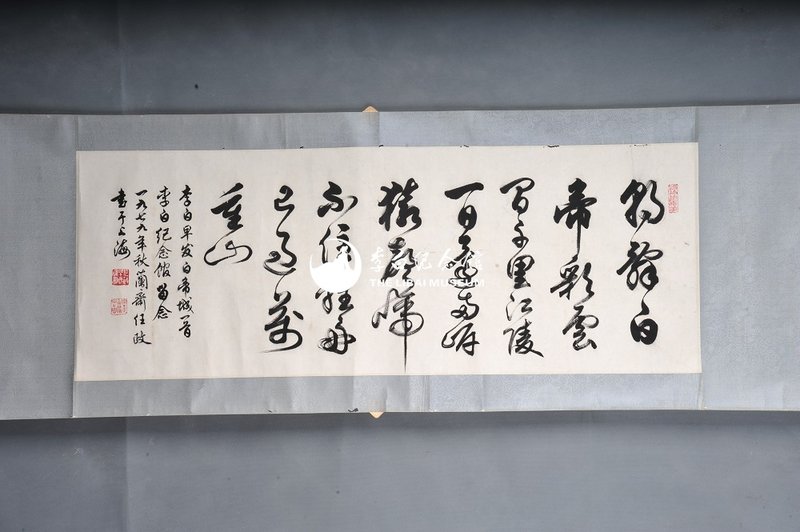 朝辭白
帝彩雲
間千里江陵
一日還兩岸
猿聲啼
不住輕舟
已過萬
重山
李白早发白帝城一首
李白纪念馆留念
一九七九年秋蘭齋任政
書于上海
李白纪念馆
THE LIBAI MUSEUM